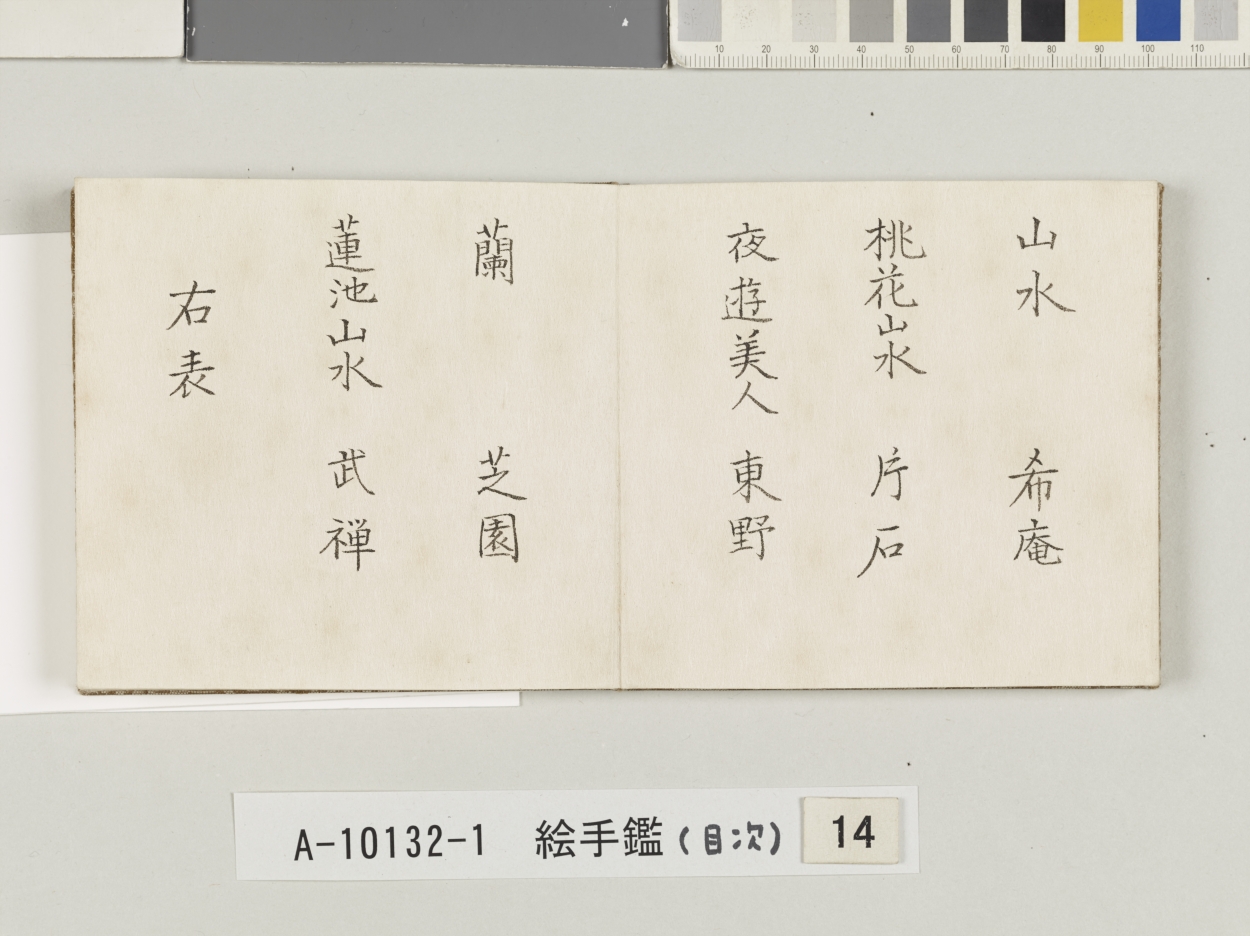 10 20 30 40 50 60 70 80 90 100 110
山水 希庵
桃花山水 片石
夜遊美人 東野
蘭 芝園
蓮池山水 武禅
右表
A-10132-1 絵手鑑(目次) 14